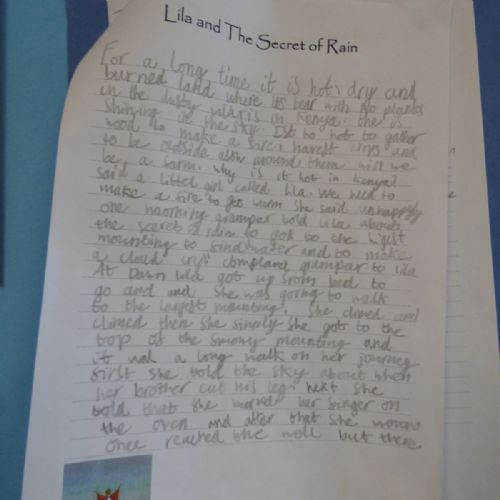 Lila and The Secret of Rain
For a long time it is hot, dry and
burned land where its bear with no plants
in the dusty in Kenya. the is
shining in the sky Ist to hot to gather
wood to make a fire. harest crops and
to be outside around them will we
be a farm. why is it hot in Kenya?
said a littel girl called Lila. We need to
make a fire to get wurm she said unhappily
one naorning grampar told Lila about
the secret of rain to got to the higist
mounting to find water and to make
a cloud cry! compland grampar to lila
At Dawn Lila got up from bed to
go and and she was going to walk
to the largist mounting. she climed and
climed then she finaly she got to the
top of the mounting and
it wal a long walk on her journey
first she told the sky about when
her brother cut his leg. next she
told that she burned her finger on
the oven and after that she
once reached the well but there